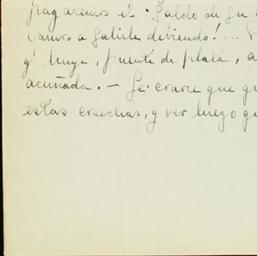 pagaremos el saldo de su
vamos a salirle debiendo!...
q' huye, puente de plata, a
acuñada. — Se cruce que
estas cosechas, y ver luego